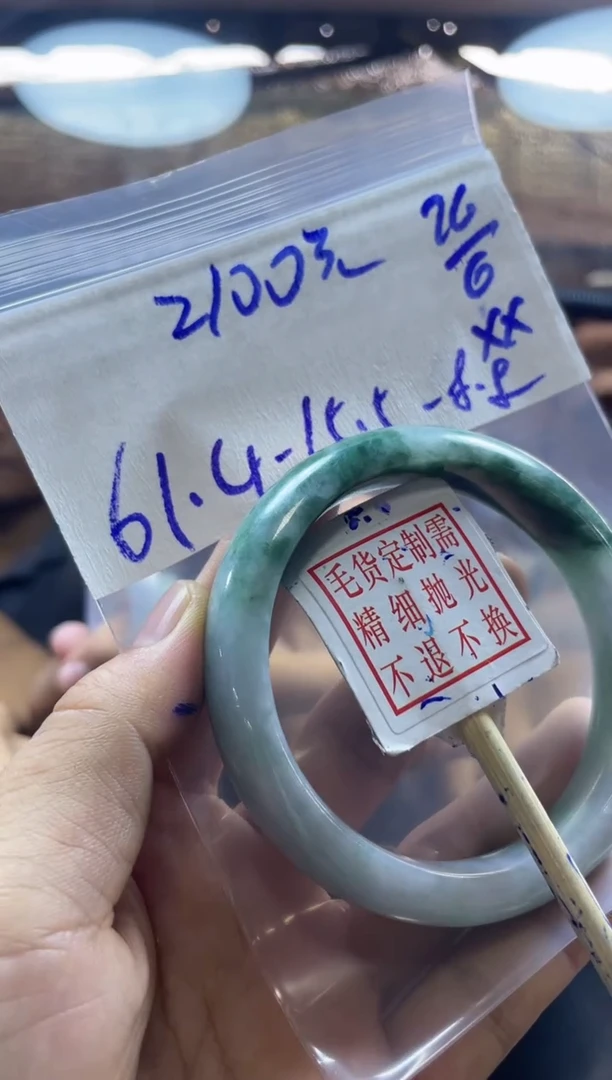 2100元
26
6
XX
61.4-15.5-8.8
毛货定制需
精细抛光
不退不换